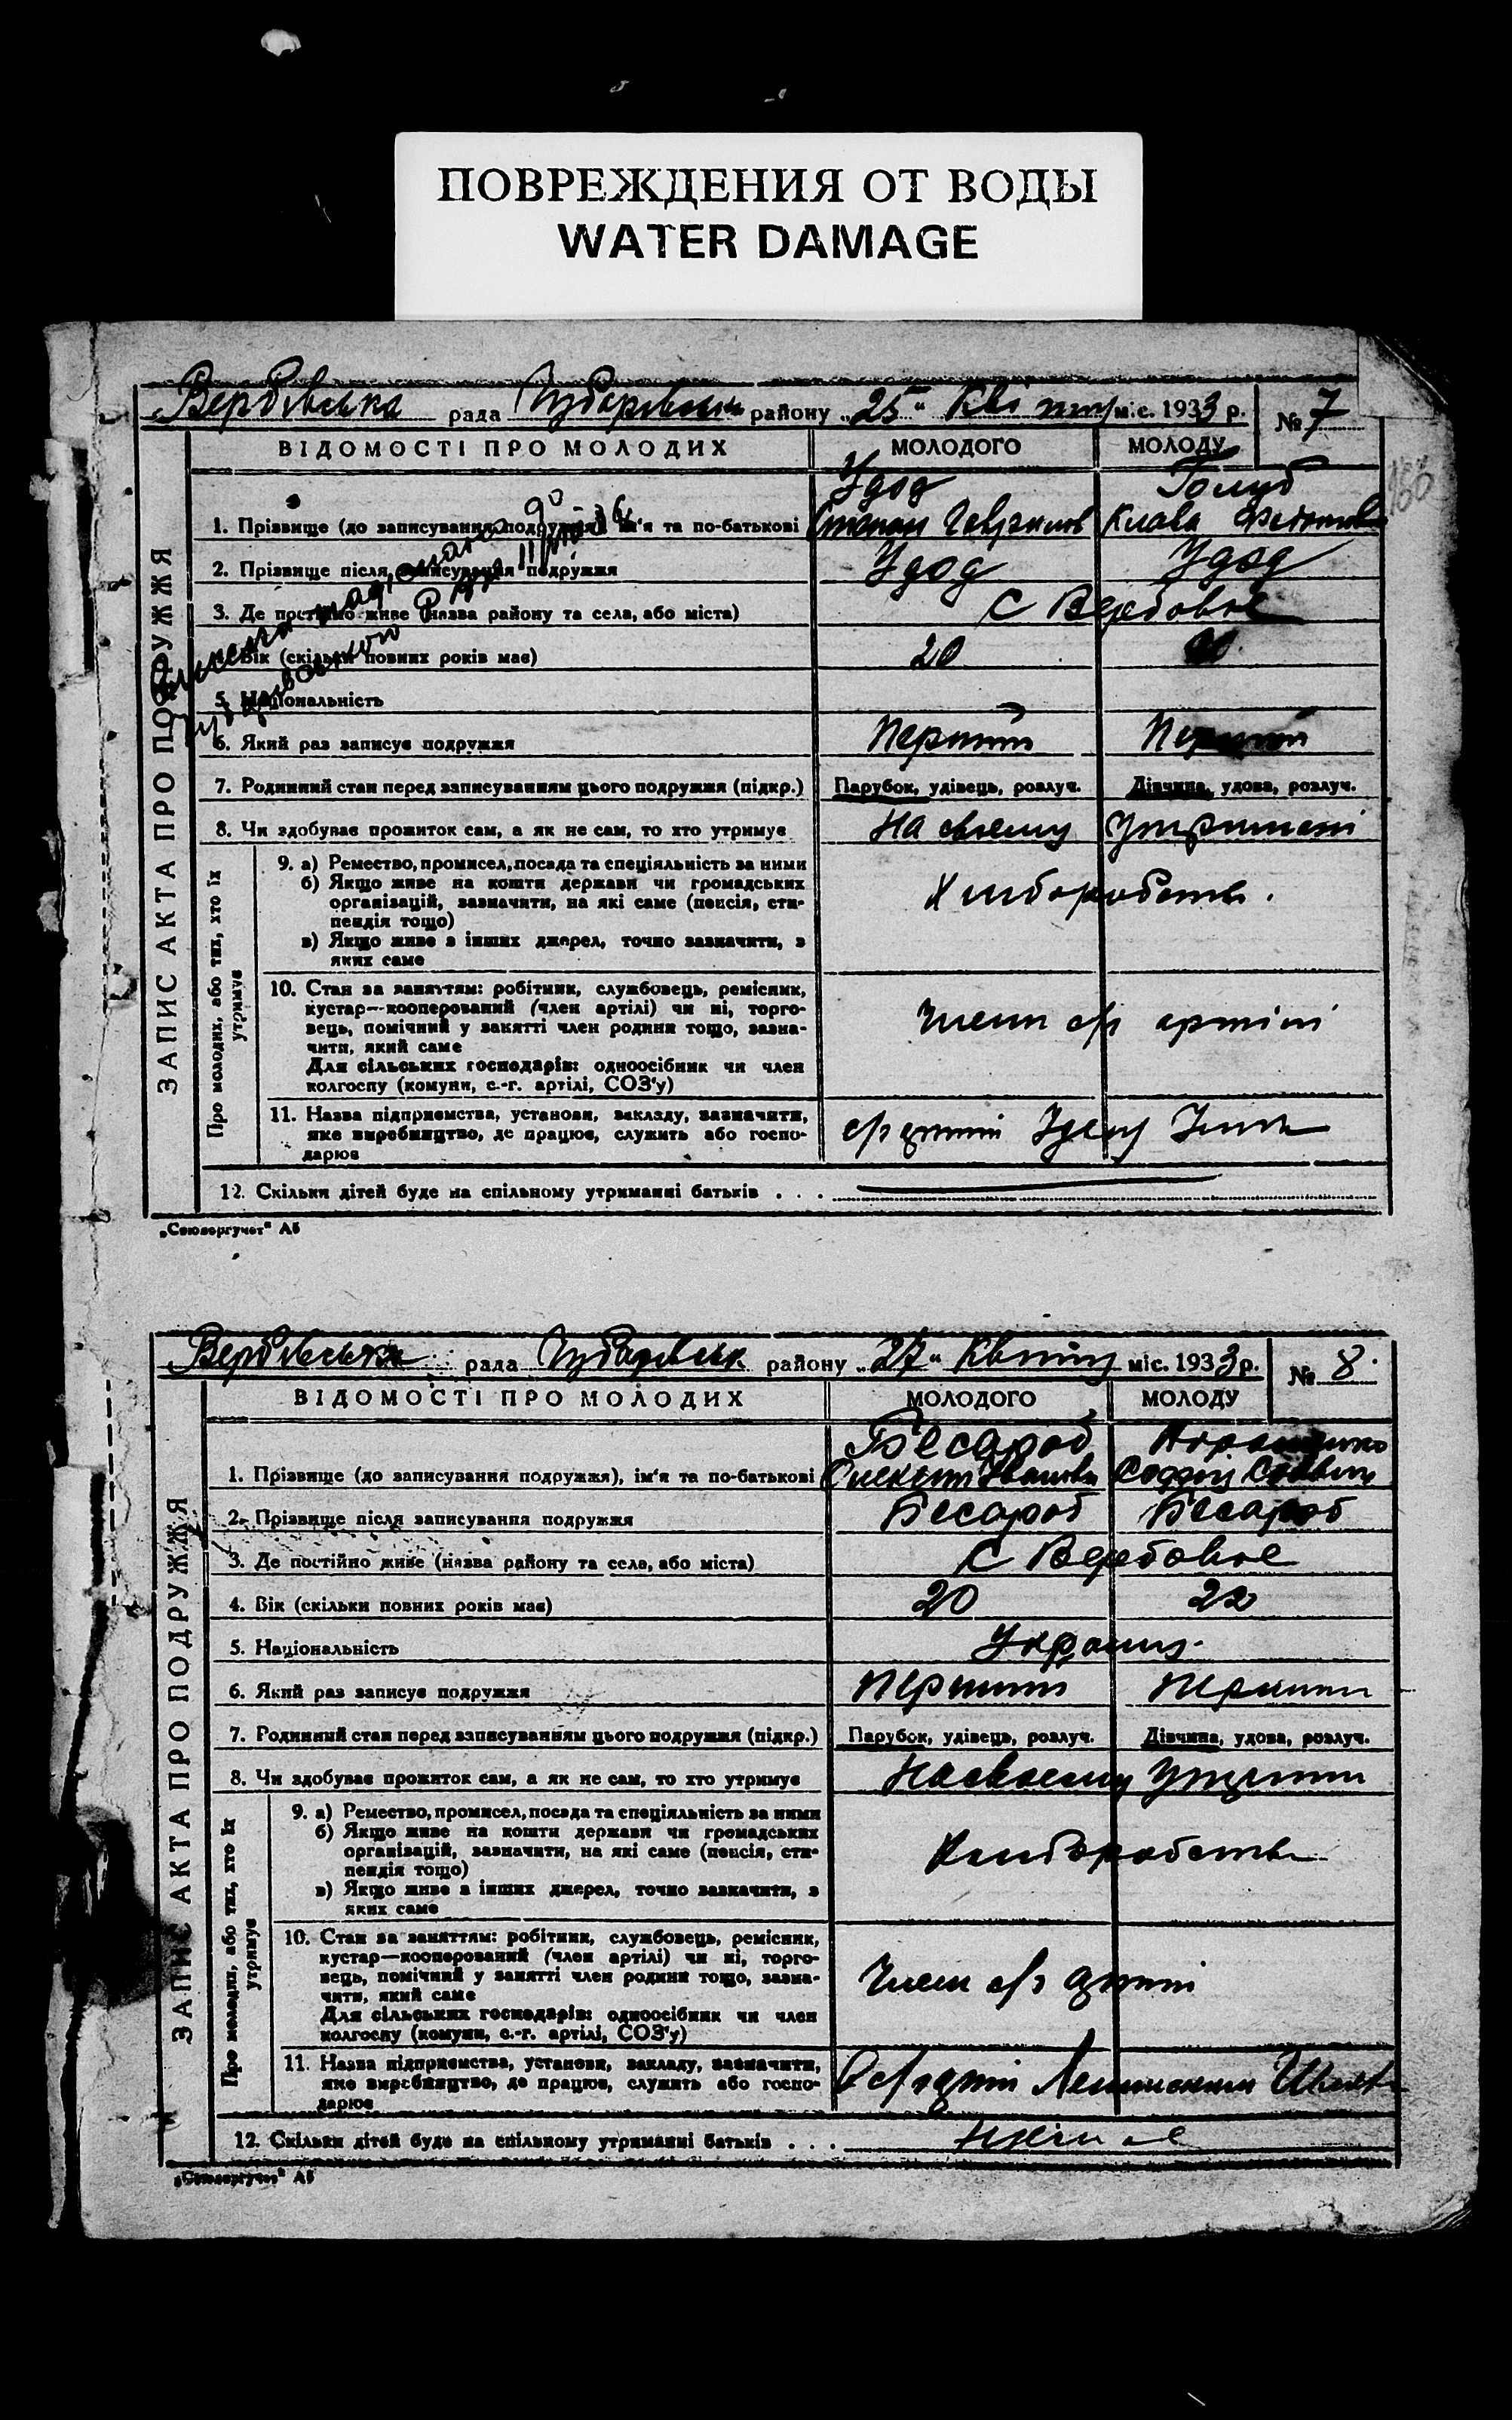 ПОВРЕЖДЕНИЯ ОТ ВОДЫ
WATER DAMAGE
Вербівська рада Чубарівськ району „25“ Квітня міс. 1933 р. № 7
ВІДОМОСТІ ПРО МОЛОДИХ МОЛОДОГО МОЛОДУ
ЗАПИС АКТА ПРО ПОДРУЖЖЯ
Удод Голуб
1. Прізвище (до записування подружжя), ім'я та по-батькові Степан Клава
2. Прізвище після записування подружжя Удод Удод
3. Де постійно живе (назва району та села, або міста) С Вербовое
4. Вік (скільки повних років має) 20
5. Національність
6. Який раз записує подружжя Перший Перший
7. Родинний стан перед записуванням цього подружжя (підкр.) Парубок, удівець, розлуч. Дівчина, удова, розлуч.
8. Чи здобуває прожиток сам, а як не сам, то хто утримує На своему утримані
Про молодих, або тих, хто їх утримує
9. а) Ремество, промисел, посада та спеціяльність за ними
б) Якщо живе на кошти держави чи громадських
організацій, зазначити, на які саме (пенсія, сти-
пендія тощо)
Хлиборобство.
в) Якщо живе з інших джерел, точно зазначити, з
яких саме
10. Стан за заняттям: робітник, службовець, ремісник,
кустар—кооперований (член артілі) чи ні, торго-
вець, помічний у занятті член родини тощо, зазна-
чити, який саме
Член с/г артілі
Для сільських господарів: одноосібник чи член
колгоспу (комуни, с.-г. артілі, СОЗ'у)
11. Назва підприємства, установи, закладу, зазначити,
яке виробництво, де працює, служить або госпо-
дарює
12. Скільки дітей буде на спільному утриманні батьків . . .
„Союзоргучет“ А5
Вербівська рада Чубарівськ району „27“ Квітня міс. 1933 р. № 8
ВІДОМОСТІ ПРО МОЛОДИХ МОЛОДОГО МОЛОДУ
ЗАПИС АКТА ПРО ПОДРУЖЖЯ
Бесараб
1. Прізвище (до записування подружжя), ім'я та по-батькові
2. Прізвище після записування подружжя Бесараб Бесараб
3. Де постійно живе (назва району та села, або міста) С Вербовое
4. Вік (скільки повних років має) 20 22
5. Національність
6. Який раз записує подружжя Перший Перший
7. Родинний стан перед записуванням цього подружжя (підкр.) Парубок, удівець, розлуч. Дівчина, удова, розлуч.
8. Чи здобуває прожиток сам, а як не сам, то хто утримує На своему
Про молодих, або тих, хто їх утримує
9. а) Ремество, промисел, посада та спеціяльність за ними
б) Якщо живе на кошти держави чи громадських
організацій, зазначити, на які саме (пенсія, сти-
пендія тощо)
Хлиборобство
в) Якщо живе з інших джерел, точно зазначити, з
яких саме
10. Стан за заняттям: робітник, службовець, ремісник,
кустар—кооперований (член артілі) чи ні, торго-
вець, помічний у занятті член родини тощо, зазна-
чити, який саме
Член с/г артілі
Для сільських господарів: одноосібник чи член
колгоспу (комуни, с.-г. артілі, СОЗ'у)
11. Назва підприємства, установи, закладу, зазначити,
яке виробництво, де працює, служить або госпо-
дарює
12. Скільки дітей буде на спільному утриманні батьків . . .
„Союзоргучет“ А5